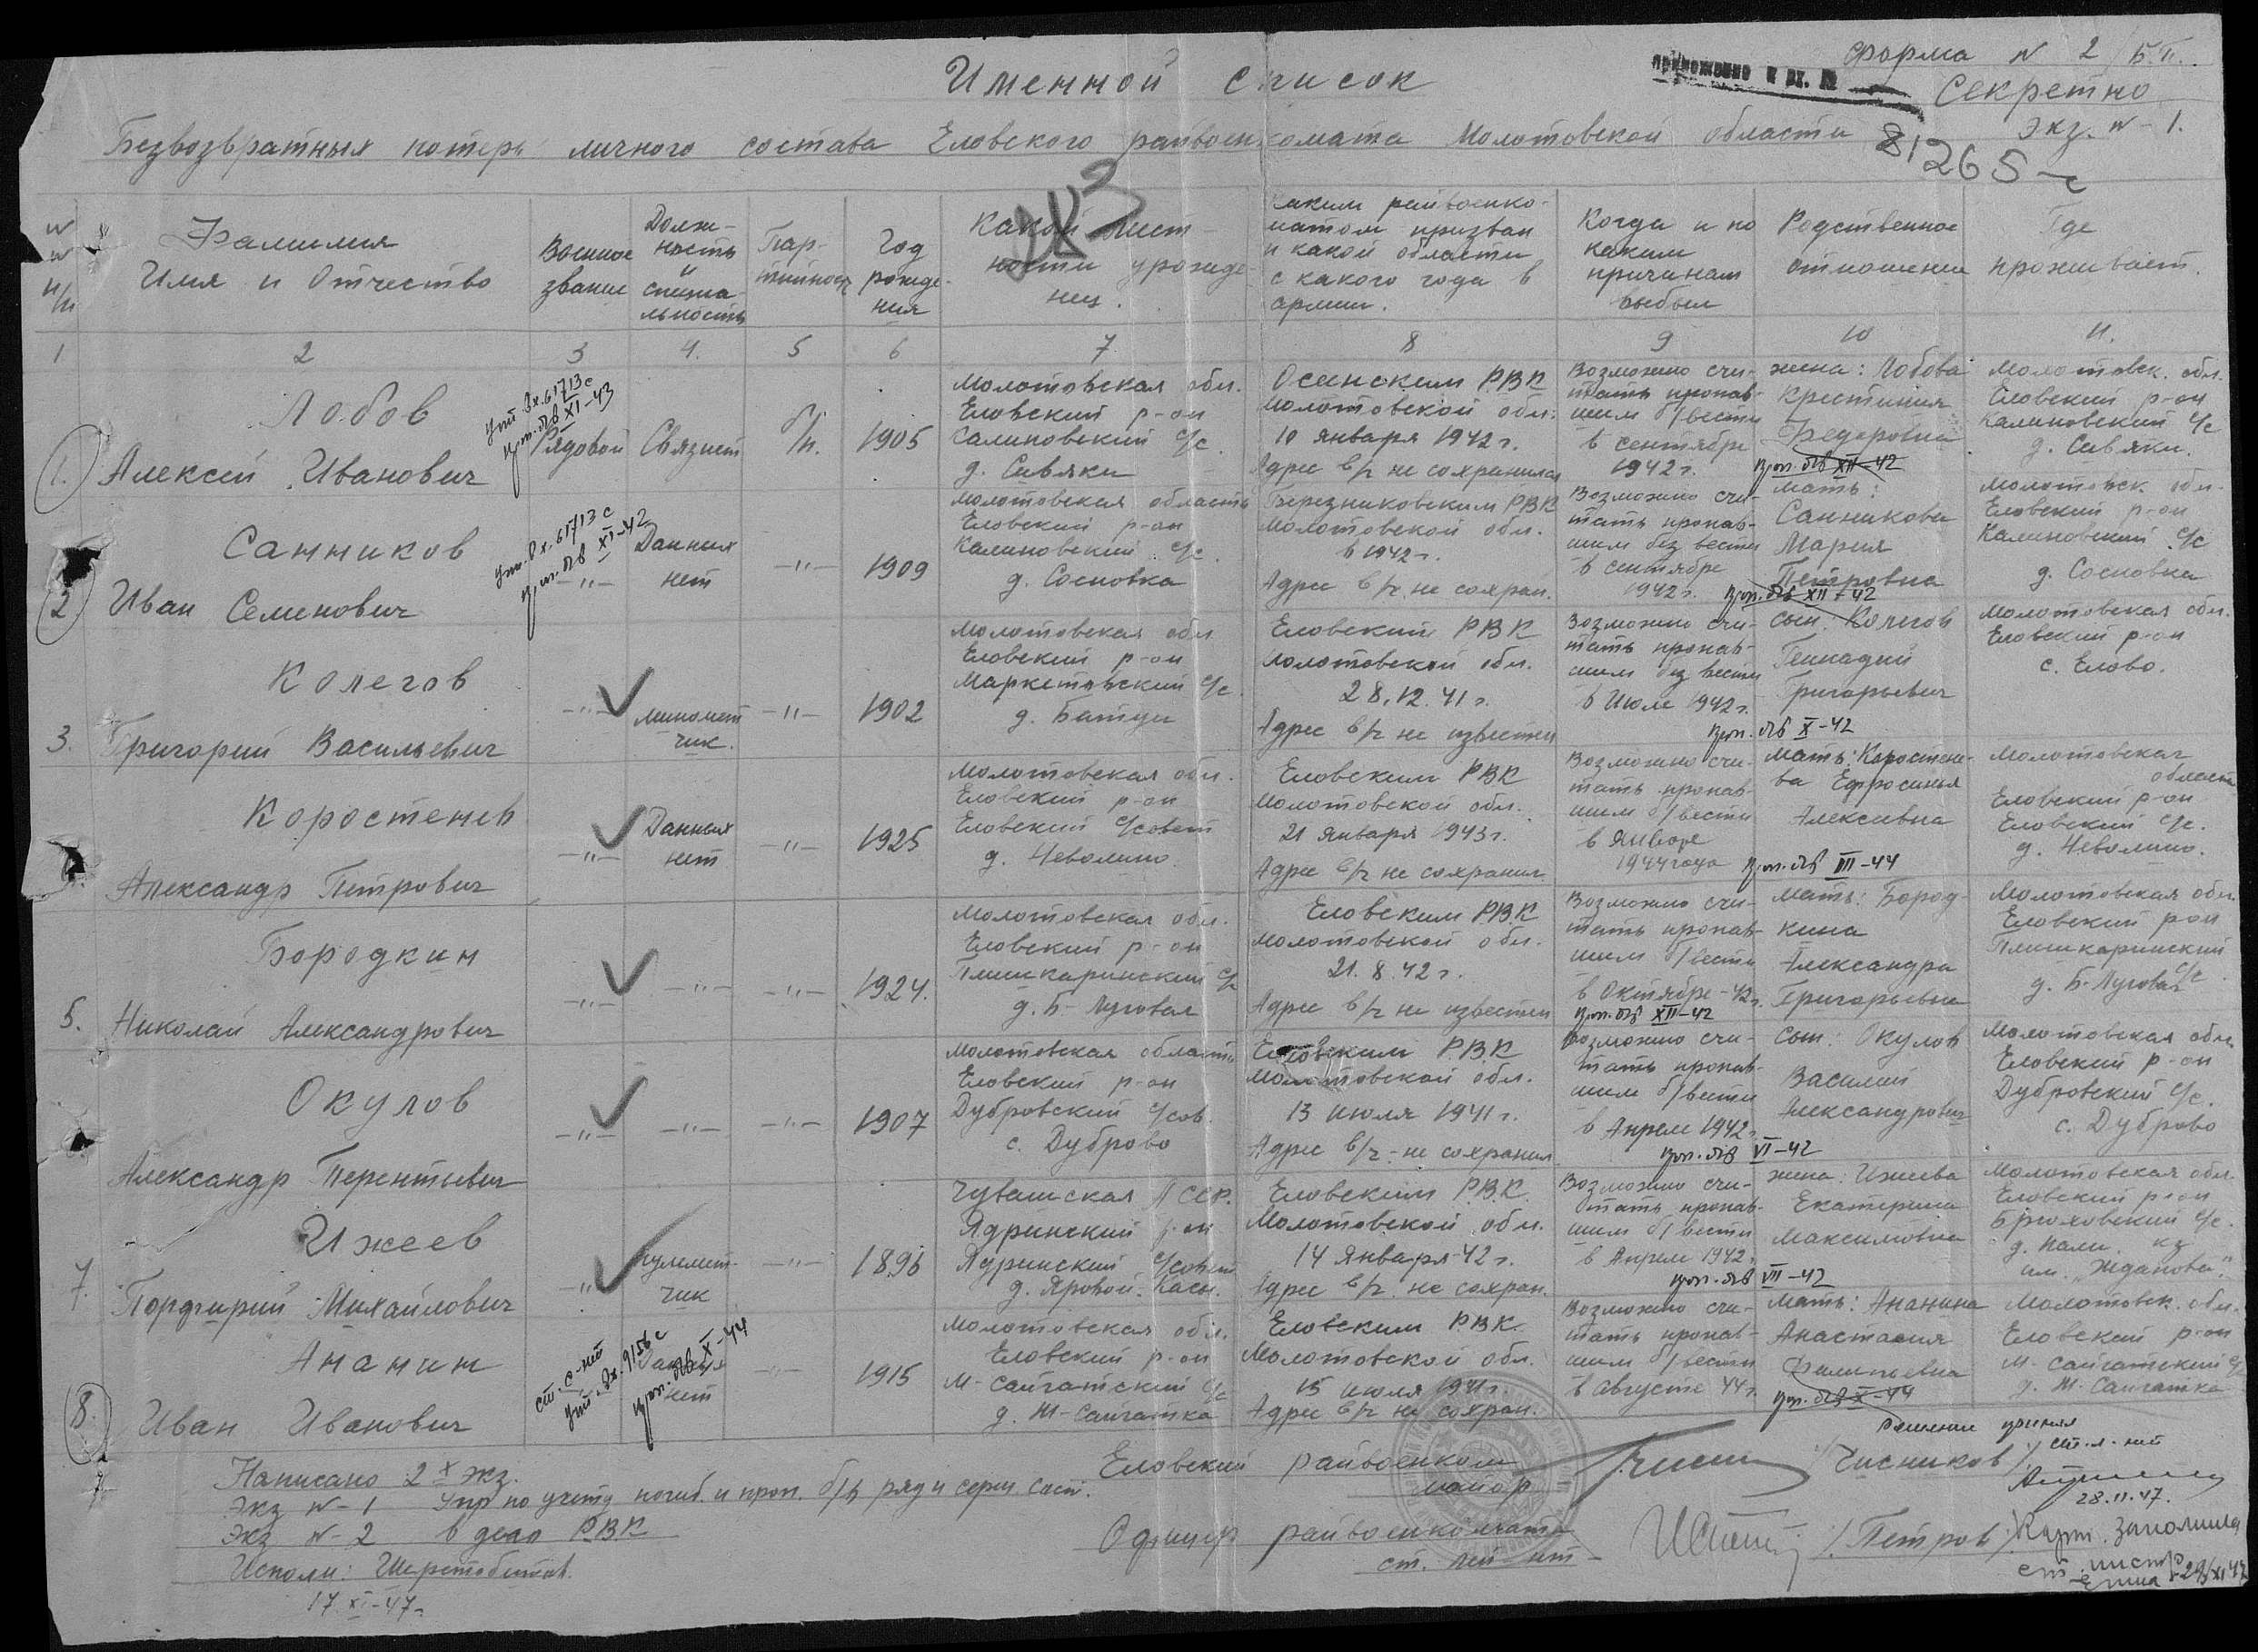 Форма N 2/Б.П.
приложение к вх. №
Секретно
Экз. N-1.
81265с
Именной список
Безвозвратных потерь личного состава Еловского райвоенкомата Молотовской области
N N п/п
Фамилия Имя и Отчество
Военное звание
Должность и специальность
Партийность
Год рождения
Какой местности уроженец.
Каким райвоенкоматом призван и какой области с какого года в армии.
Когда и по каким причинам выбыл
Родственное отношение
Где проживает.
1 2 3 4. 5 6 7 8 9 10 11.
1. Лобов
Алексей Иванович
упт. вх. 61713с
пр. п. б/в XI-43
Рядовой
Связист
б/п.
1905
Молотовская обл.
Еловский р-он
Калиновский с/с
д. Сивяки
Осинским РВК
Молотовской обл.
10 января 1942 г.
Адрес в/ч не сохранился
Возможно счи-
тать пропав-
шим б/вести
в сентябре
1942 г.
жена: Лобова
Крестиния
Федоровна
проп. б/в XII-42
Молотовск. обл.
Еловский р-он
Калиновский с/с
д. Сивяки.
2. Санников
Иван Семенович
упт. вх. 61713с
пр. п. б/в XI-42
-"-
Данных
нет
-"-
1909
Молотовская область
Еловский р-он
Калиновский с/с.
д. Сосновка
Березниковским РВК
Молотовской обл.
в 1942 г.
Адрес в/ч. не сохран.
Возможно счи-
тать пропав-
шим без вести
в сентябре
1942 г.
мать:
Санникова
Мария
Петровна
проп. б/в XII-42
Молотовск. обл.
Еловский р-он
Калиновский с/с
д. Сосновка
3. Колегов
Григорий Васильевич
-"-
миномет
чик.
-"-
1902
Молотовская обл
Еловский р-он
Маркетовский с/с.
д. Батуи
Еловским РВК
Молотовской обл.
28.12.41 г.
Адрес в/ч не известен
Возможно счи-
тать пропав-
шим без вести
в Июле 1942 г.
сын: Колегов
Геннадий
Григорьевич
проп. б/в X-42
Молотовская обл.
Еловский р-он
с. Елово.
Коростенев
Александр Петрович
-"-
Данных
нет
-"-
1925
Молотовская обл.
Еловский р-он
Еловский с/совет
д. Неволино.
Еловским РВК
Молотовской обл.
21 января 1943 г.
Адрес в/ч не сохранил.
Возможно счи-
тать пропав-
шим б/вести
в Январе
1944 года
Мать: Коростене-
ва Ефросинья
Алексивна
проп. б/в III-44
Молотовская
область
Еловский р-он
Еловский с/с.
д. Неволино.
5. Бородкин
Николай Александрович
-"-
-"-
-"-
1924.
Молотовская обл.
Еловский р-он
Плишкаринский с/с
д. Б-Луговая
Еловским РВК
Молотовской обл.
21.8.42 г.
Адрес в/ч не известен
Возможно счи-
тать пропав-
шим б/вести
в Октябре-42 г.
проп. б/в XII-42
Мать: Бород-
кина
Александра
Григорьевна
Молотовская обл
Еловский рон
Плишкаринский
с/с
д. Б-Луговая
Окулов
Александр Перентьевич
-"-
-"-
-"-
1907
Молотовская область
Еловский р-он
Дубровский с/сов.
с. Дуброво
Еловским Р.В.К
Молотовской обл.
13 июля 1941 г.
Адрес в/ч-не сохранил
Возможно счи-
тать пропав-
шим б/вести
в Апреле 1942 г.
сын: Окулов
Василий
Александрович
проп. б/в VI-42
Молотовская обл.
Еловский р-он
Дубровский с/с.
с. Дуброво
7. Ижеев
Порфирий Михайлович
-"-
пулемет-
чик
-"-
1896
Чувашская АССР.
Ядринский р-он
Ядринский с/совет
д. Яровой-Касы.
Еловским Р.В.К.
Молотовской обл.
14 Января-42 г.
Адрес в/ч. не сохран.
Возможно счи-
тать пропав-
шим б/вести
в Апреле 1942 г.
жена: Ижеева
Екатерина
Максимовна
проп. б/в VII-42
Молотовская обл.
Еловский р-он
Брюховский с/с.
им. "Жданова".
8. Ананин
Иван Иванович
ст. с-нт
упт. вх. 9156с
проп. б/в X-44
Данных
нет
-"-
1915
Молотовская обл.
Еловский р-он
М-Сайгатский с/с
д. М-Сайгатка
Еловским РВК.
Молотовской обл.
15 июля 1941 г.
Адрес в/ч не сохран.
Возможно счи-
тать пропав-
шим б/вести
в августе 44 г.
Мать: Ананина
Анастасия
Филипьевна
проп. б/в X-44
Молотовск. обл.
Еловский р-он
М-Сайгатский с/с
д. М-Сайгатка
Написано 2х экз.
Экз N-1 Упр по учету погиб. и проп. б/в ряд и серж сост.
Экз N-2 в дело РВК
Исполн: Шерстобитов.
17.XI-47 г.
Еловский райвоенком
майор
/Чисников/
Офицер райвоенкомата
ст. лей-нт-
/Петров/
решение принял
ст. л-нт
28.11.47.
Карт. заполнила